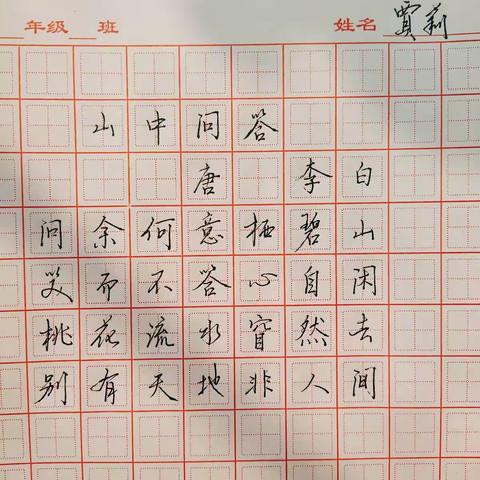 年级 班 姓名 贾莉
山中问答
唐 李白
问余何意栖碧山
笑而不答心自闲
桃花流水窅然去
别有天地非人间